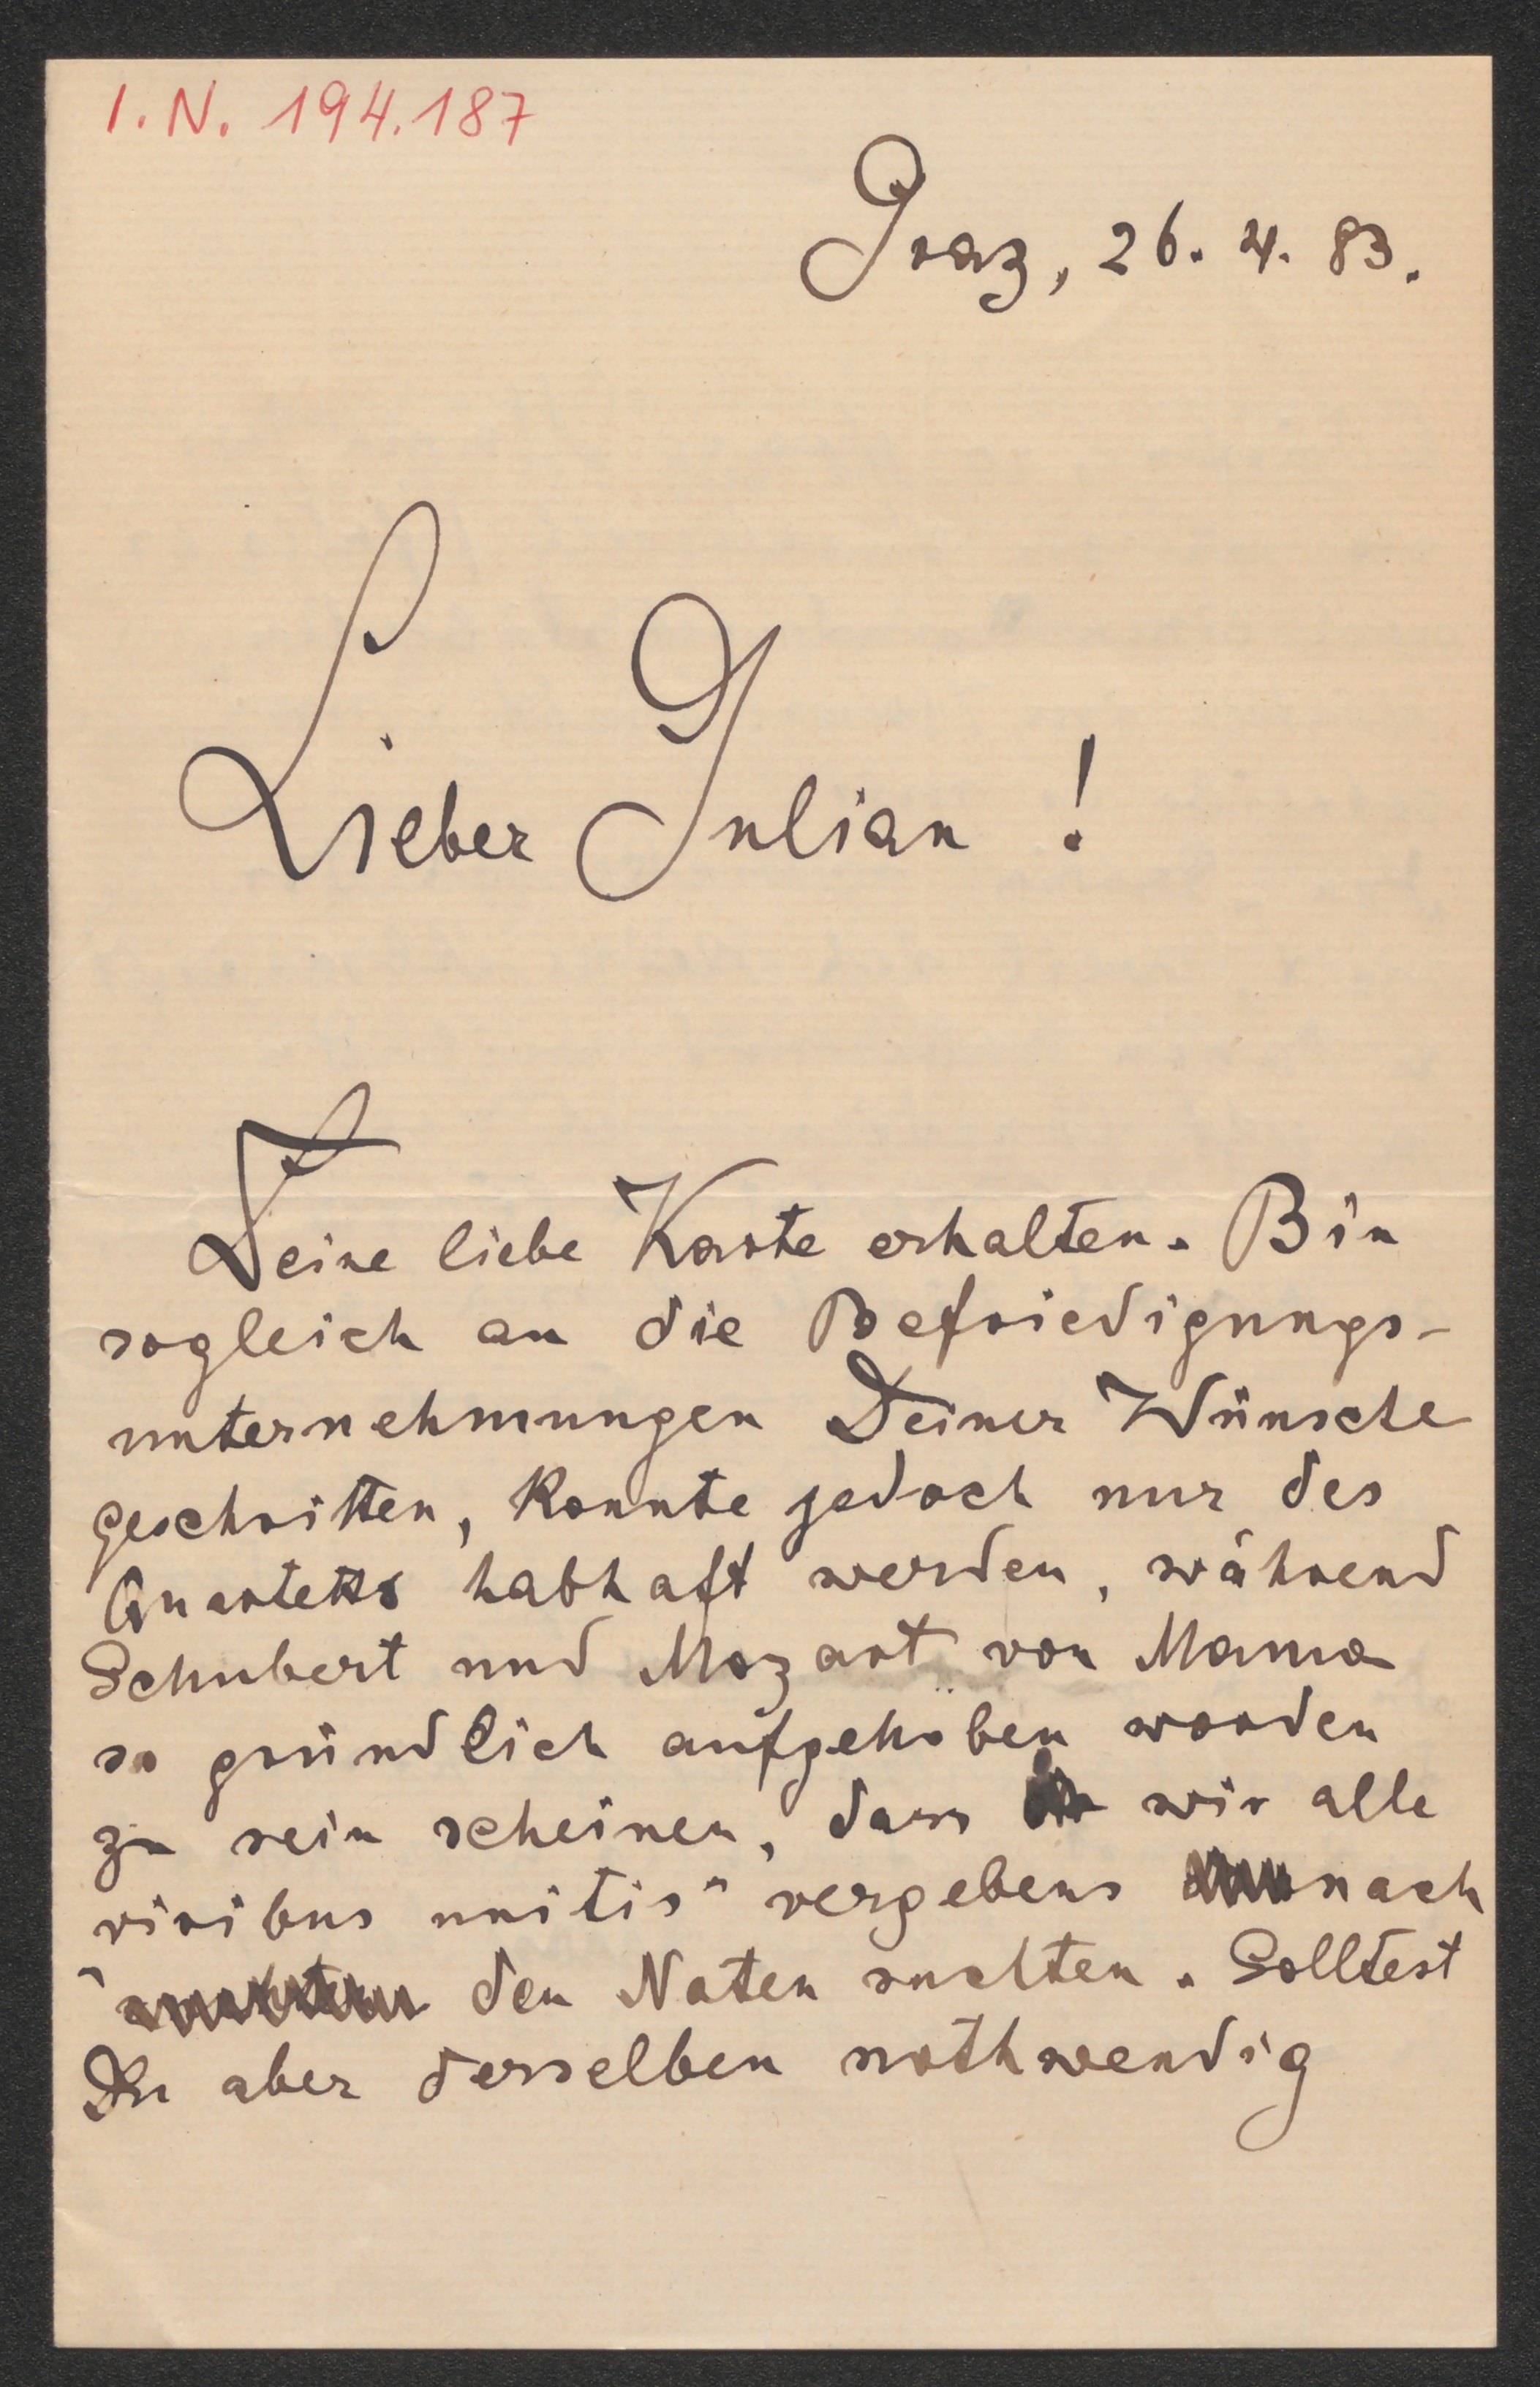 I. N. 194.187
Graz, 26. 4. 83.
Lieber Julian !
Deine liebe Karte erhalten. Bin
sogleich an die Befriedigungs-
unternehmungen Deiner Wünsche
geschritten, konnte jedoch nur des
Quartetts habhaft werden, während
Schubert und Mozart von Mama
so gründlich aufgehoben worden
zu sein scheinen, dass wir alle
„viribus unitis“ vergebens nach
den Noten suchten. Solltest
Du aber derselben nothwendig